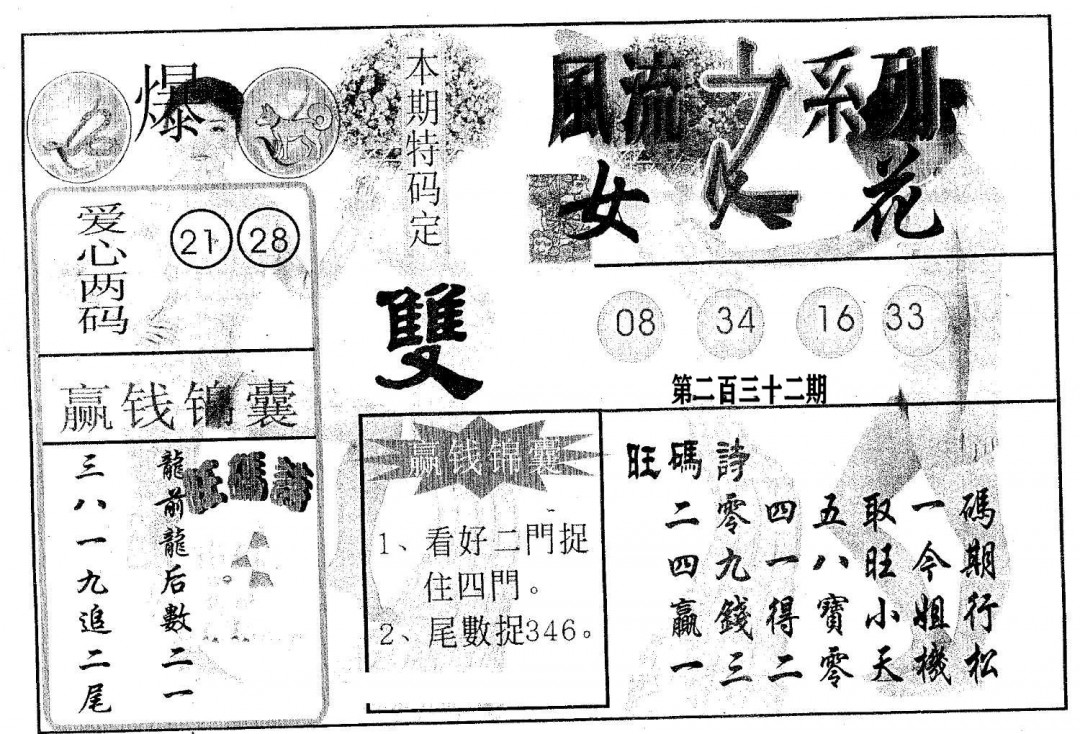 爆
本期特码定
雙
風流之系列
女人花
爱心两码
21 28
08 34 16 33
第二百三十二期
赢钱锦囊
旺碼詩
龍前龍后數二一
三八一九追二尾
赢钱锦囊
1、看好二門捉
住四門。
2、尾數捉346。
旺碼詩
二零四五取一碼
四九一八旺今期
贏錢得寶小姐行
一三二零天機松